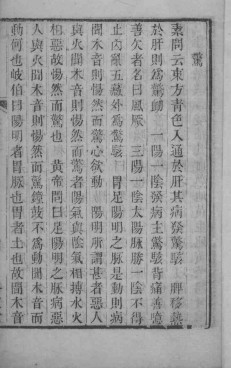 驚
素問云東方青色入通於肝其病發驚駭　脾移熱
於肝則為驚衄　一陽一陰發病主驚駭背痛善噫
善欠者名曰風厥　三陽一陰太陽脉勝一陰不得
止内亂五藏外為驚駭　胃足陽明之脉是動則病
聞木音則惕然而驚心欲動　陽明所謂甚者惡人
與火聞木音則惕然而驚者陽氣與陰氣相搏水火
相惡故惕然而驚也　黃帝問曰足陽明之脉病惡
人與火聞木音則惕然而驚鐘鼓不為動聞木音而
驚何也岐伯曰陽明者胃脉也胃者土也故聞木音